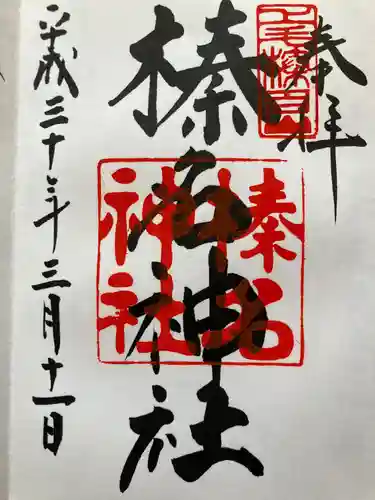 奉拝
榛名神社
榛名
神社
平成三十年三月十一日